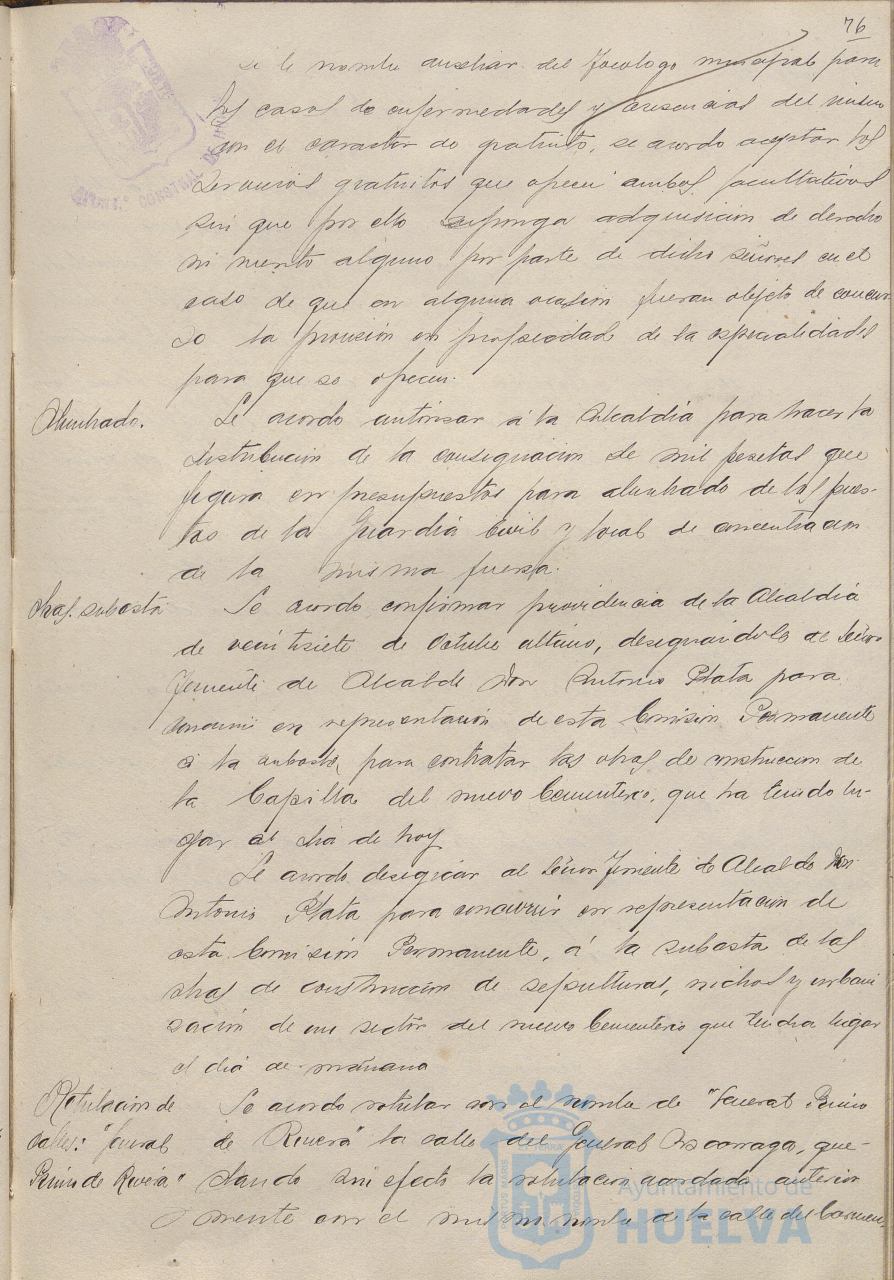 76
se le nombre auxiliar del Tocólogo municipal para
los casos de enfermedades y ausencias del mismo
con el caracter de gratuito, se acordo aceptar los
servicios gratuitos que ofrecen ambos facultativos
sin que por ello suponga adquisicion de derecho
ni merito alguno por parte de dicho señores en el
caso de que en alguna ocasion fueran objeto de concur
so la provision en propiedad de la especialidades
para que se ofrecen.
Alumbrado.
Se acordo autorizar á la Alcaldia para hacer la
distribucion de la consignacion de mil pesetas que
figura en presupuestos para alumbrado de los pues-
tos de la Guardia Civil y local de concentracion
de la misma fuerza.
Obras. subasta
Se acordo confirmar providencia de la Alcaldia
de veintisiete de Octubre ultimo, designándole al Señor
Teniente de Alcalde Don Antonio Plata para
concurrir en representacion de esta Comision Permanente
á la subasta, para contratar las obras de construccion de
la Capilla del nuevo Cementerio, que ha tenido lu-
gar el dia de hoy
Se acordo designar al Señor Teniente de Alcalde Don
Antonio Plata para concurrir en representacion de
esta Comisión Permanente, á la subasta de las
obras de construccion de sepulturas, nichos y urbani
zación de un sector del nuevo Cementerio que tendra lugar
el dia de mañana
Rotulacion de
calles: "General
Primo de Rivera"
Se acordo rotular con el nombre de "General Primo
de Rivera" la calle del General Azcarraga, que-
dando sin efecto la rotulacion acordada anterior
mente con el mismo nombre de la calle del Carmen.
Ayuntamiento de
HUELVA